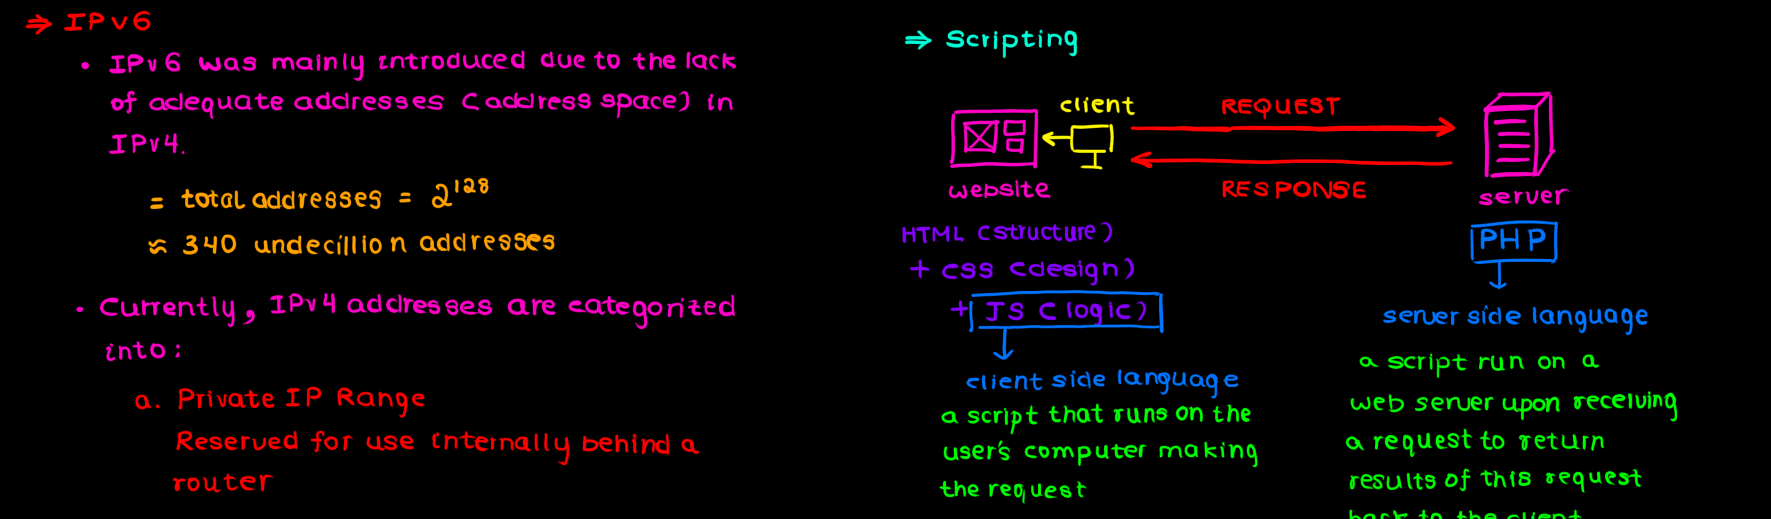 ⇒ IPv6
• IPv6 was mainly introduced due to the lack
of adequate addresses (address space) in
IPv4.
= total addresses = 2¹²⁸
≈ 340 undecillion addresses
• Currently, IPv4 addresses are categorized
into:
a. Private IP Range
Reserved for use internally behind a
router
⇒ Scripting
client
REQUEST
website
RESPONSE
server
HTML (structure)
+ CSS (design)
+ JS (logic)
client side language
a script that runs on the
user's computer making
the request
PHP
server side language
a script run on a
web server upon receiving
a request to return
results of this request
back to the client